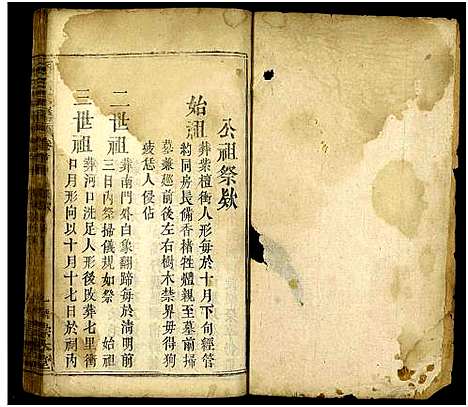 公祖祭欵
始祖
葬紫檀衝人形每於十月下旬經管
約同房長備香楮牲體親至墓前掃
墓兼廵前後左右樹木禁界毋得狥
疲恁人侵佔
二世祖
葬南門外白象翻蹄每於清明前
三日內祭掃儀規如祭 始祖
三世祖
葬河口洗足人形後改葬七里衝
日月形向以十月十七日於祠內